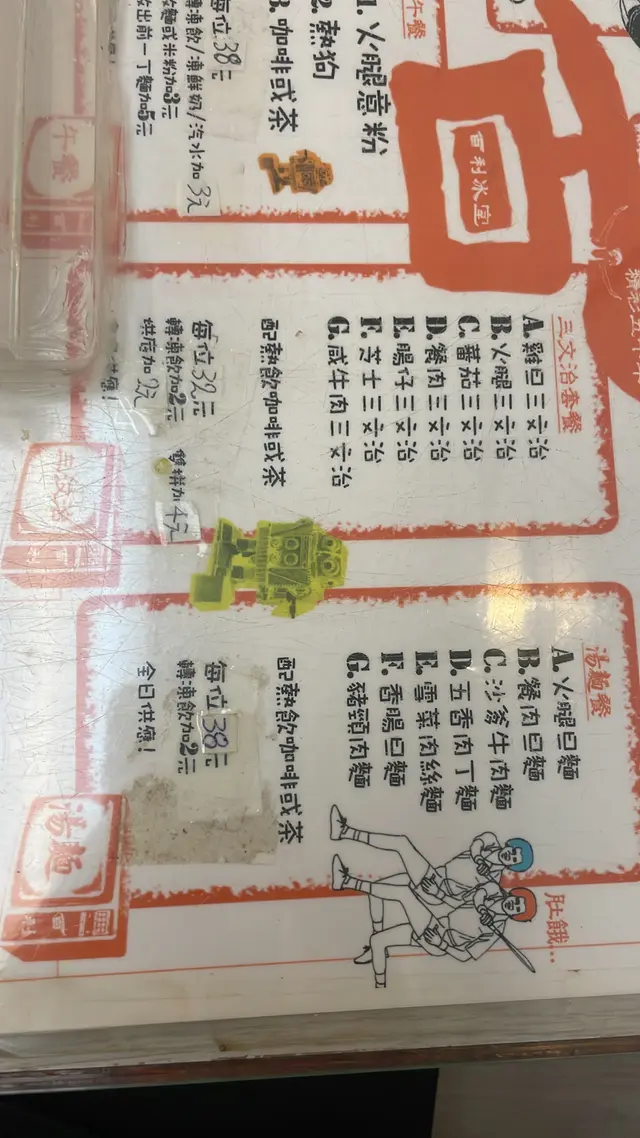 午餐
1. 火腿意粉
2. 熱狗
3. 咖啡或茶
每位38元
轉凍飲/凍鮮奶/汽水加3元
午餐
百利冰室
三文治套餐
A. 雞旦三文治
B. 火腿三文治
C. 蕃茄三文治
D. 餐肉三文治
E. 腸仔三文治
F. 芝士三文治
G. 咸牛肉三文治
配熱飲咖啡或茶
每位32元
轉凍飲加2元 雙拼加4元
烘底加2元
三文治
湯麵餐
A. 火腿旦麵
B. 餐肉旦麵
C. 沙爹牛肉麵
D. 五香肉丁麵
E. 雪菜肉絲麵
F. 香腸旦麵
G. 豬頸肉麵
配熱飲咖啡或茶
每位38元
轉凍飲加2元
全日供應!
湯麵
肚餓...